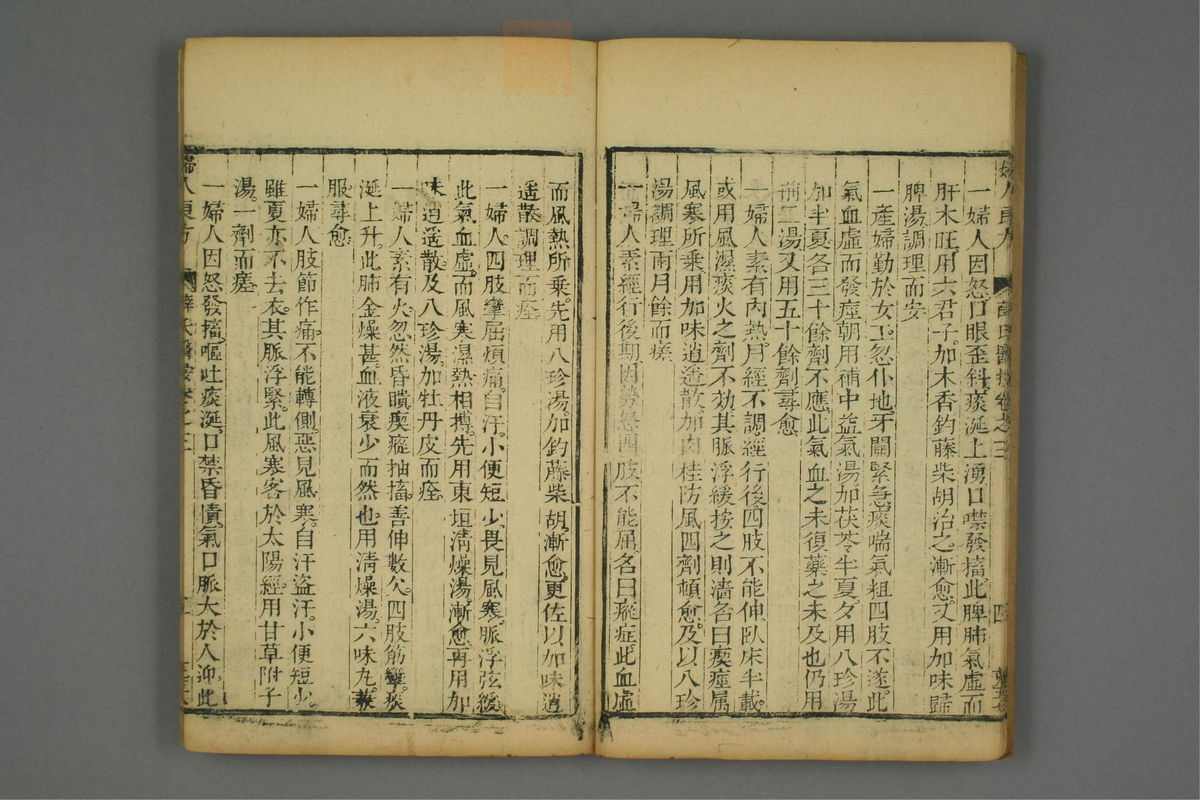 婦人良方 薛氏醫按卷之三 四
一婦人因怒口眼歪斜痰涎上湧口噤發搐此脾肺氣虛而
肝木旺用六君子加木香鈎藤柴胡治之漸愈又用加味歸
脾湯調理而安
一產婦勤於女工忽仆地牙關緊急痰喘氣粗四肢不遂此
氣血虛而發痙朝用補中益氣湯加茯苓半夏夕用八珍湯
加半夏各三十餘劑不應此氣血之未復藥之未及也仍用
前二湯又用五十餘劑尋愈
一婦人素有內熱月經不調經行後四肢不能伸臥床半載
或用風濕痰火之劑不効其脈浮緩按之則濇名曰瘈痙屬
風寒所乘用加味逍遥散加肉桂防風四劑頓愈及以八珍
湯調理兩月餘而痊
一婦人素經行後期因勞怒四肢不能屈名曰瘲症此血虛
而風熱所乘先用八珍湯加鈎藤柴胡漸愈更佐以加味逍
遥散調理而痊
一婦人四肢攣屈煩痛自汗小便短少畏見風寒脈浮弦緩
此氣血虛而風寒濕熱相搏先用東垣清燥湯漸愈再用加
味逍遥散及八珍湯加牡丹皮而痊
一婦人素有火忽然昏瞶瘈瘲抽搐善伸數欠四肢筋攣痰
涎上升此肺金燥甚血液衰少而然也用清燥湯六味丸兼
服尋愈
一婦人肢節作痛不能轉側惡見風寒自汗盜汗小便短少
雖夏亦不去衣其脈浮緊此風寒客於太陽經用甘草附子
湯一劑而瘥
一婦人因怒發搐嘔吐痰涎口禁昏憒氣口脈大於人迎此
婦人良方 薛氏醫按卷之三